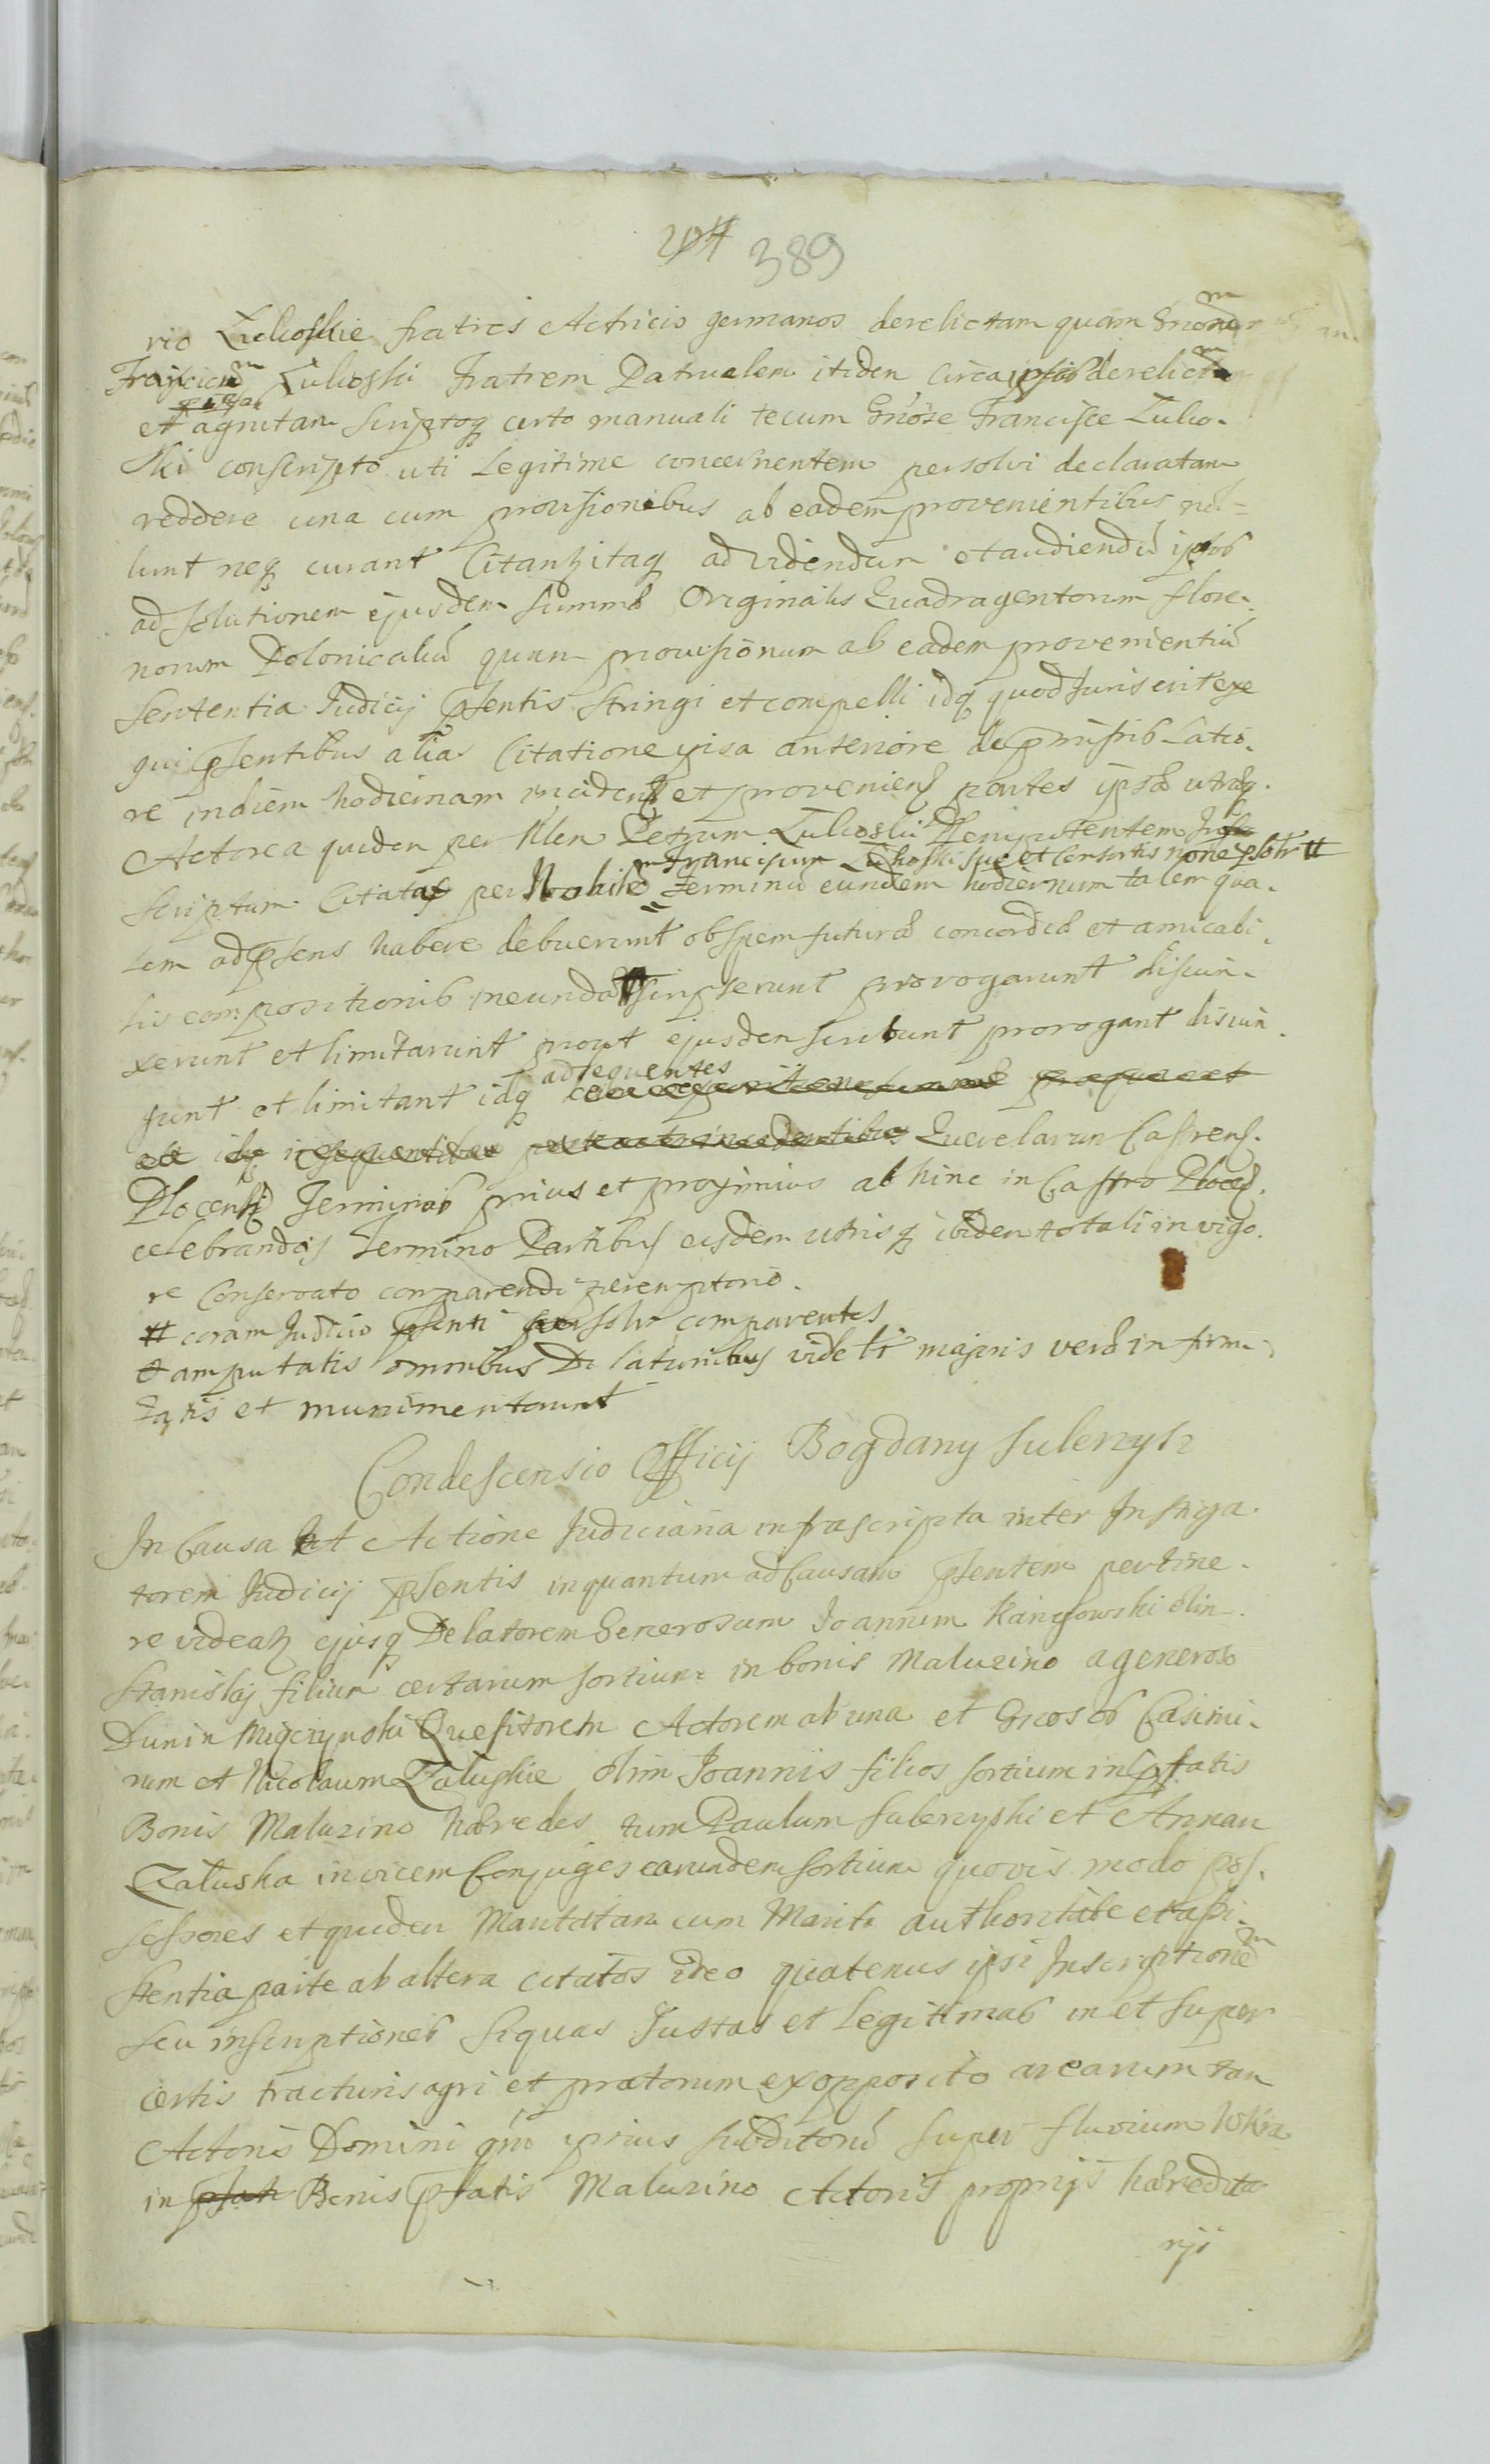 389
rio Zukoskie fratres Actricis germanos derelictam quam Gnosum
Franciscum Zukoski Fratrem Patruelem itidem circa ipsos derelictam
et agnitam scriptoq certo manuali tecum Gnose Francisce Zuko-
ski conscripto uti Legitime concernentem persolvi declaratam
reddere una cum provisionibus ab eadem provenientibus nol=
lunt neq curant Citantz itaq ad videndum et audiendu ipsos
ad solutionem ejusdem summæ Originalis Quadragentorum flore-
norum Polonicaliu quam provisionum ab eadem provenientiu
Sententia Judicij Psentis stringi et compelli idq quod Juris erit exe
qui psentibus alias Citatione pisa anteriore de pmissis Latio-
re in diem hodiernam inciden et provenien partes ipsæ utræq.
Actorea quidem per Petrum Zukoski
scriptum Citata per Nobilem Franciscum Zukoski suo et Consortis none
Terminu eundem hodiernum talem qua-
lem ad psens habere debuerunt ob spem futuræ concordiæ et amicabi-
lis compositionis ineundæ # scripserunt prorogarunt discun-
xerunt et limitarunt prout ejusdem scribunt prorogant discun-
gunt et limitant idq ad sequentes
Querelarum Castrens.
Plocens Terminos prius et proximius ab hinc in Castro Plocen.
celebrandis Termino Partibus eisdem utrisq ibidem totali in vigo-
re Conservato comparendi peremptorio.
# coram Judicio psenti psolr comparentes
et amputatis omnibus Dilationibus videlt majoris vero in firmi-
tatis et munimentarunt
Condescensio Officij Bogdany Sulerzysz
In Causa et Actione Judiciaria infrascripta inter Instiga-
torem Judicij psentis in quantum ad Causam psentem pertine-
re videatz ejusq Delatorem Generosum Joannem Kanigowski olim
Stanislaj filium certarum sortium in bonis Maluzino a generoso
Dunin Męczynski Quesitorem Actorem ab una et Gnosos Casimi-
rum et Nicolaum Załuskie olim Joannis filios sortium in pfatis
Bonis Maluzino hæredes tum Paulum Sulerzyski et Annam
Załuska invicem Conjuges earundem sortium quovis modo pos-
sessores et quidem Maritatam cum Mariti authoritate et assi-
stentia parte ab altera citatos ideo quatenus ipsi Inscriptionem
seu inscriptiones siquas Justas et Legitimas in et super
certis tracturis agri et pratorum ex opposito arearum tam
Actoris Domini qm ipsius subditoru super fluvium Wkra
in psati Bonis pfatis Maluzino Actoris proprijs hæredita
rijs